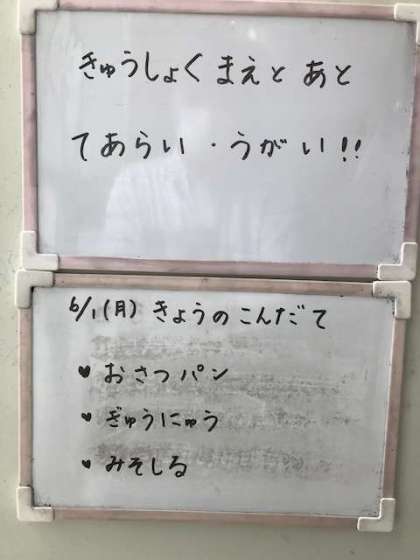 きゅうしょくまえとあと
てあらい・うがい!!
6/1(月)きょうのこんだて
♥おさつパン
♥ぎゅうにゅう
♥みそしる